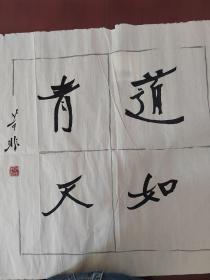 道如
青天